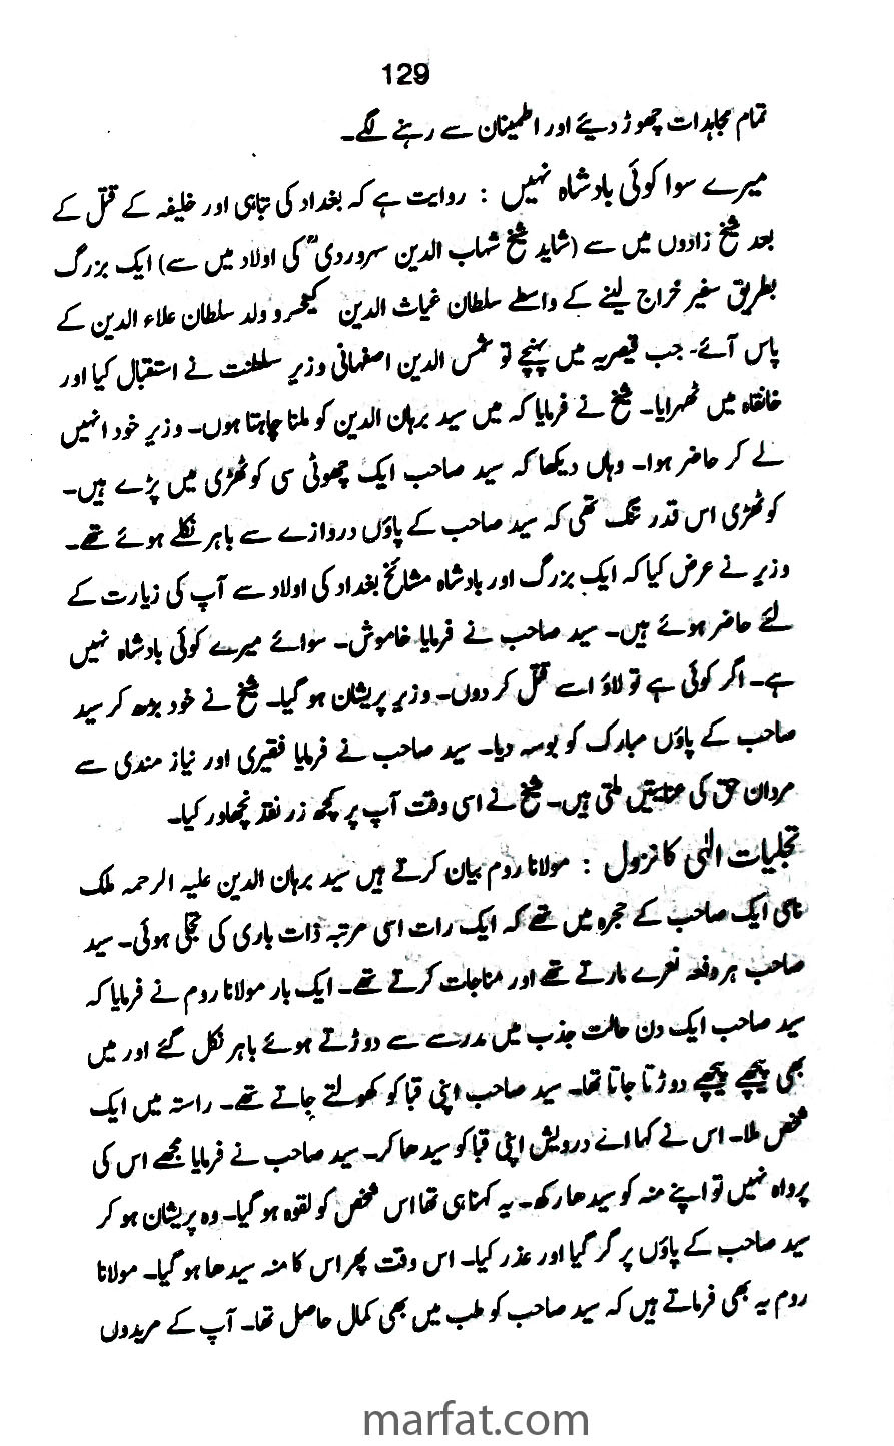 129
تمام مجاہدات چھوڑ دیئے اور اطمینان سے رہنے لگے۔
میرے سوا کوئی بادشاہ نہیں : روایت ہے کہ بغداد کی تباہی اور خلیفہ کے قتل کے
بعد شیخ زادوں میں سے (شاید شیخ شہاب الدین سہروردیؒ کی اولاد میں سے) ایک بزرگ
بطریق سفیر خراج لینے کے واسطے سلطان غیاث الدین کیخسرو ولد سلطان علاء الدین کے
پاس آئے۔ جب قیصریہ میں پہنچے تو شمس الدین اصفہانی وزیر سلطنت نے استقبال کیا اور
خانقاہ میں ٹھہرایا۔ شیخ نے فرمایا کہ میں سید برہان الدین کو ملنا چاہتا ہوں۔ وزیر خود انہیں
لے کر حاضر ہوا۔ وہاں دیکھا کہ سید صاحب ایک چھوٹی سی کوٹھڑی میں پڑے ہیں۔
کوٹھڑی اس قدر تنگ تھی کہ سید صاحب کے پاؤں دروازے سے باہر نکلے ہوئے تھے۔
وزیر نے عرض کیا کہ ایک بزرگ اور بادشاہ مشائخ بغداد کی اولاد سے آپ کی زیارت کے
لئے حاضر ہوئے ہیں۔ سید صاحب نے فرمایا خاموش۔ سوائے میرے کوئی بادشاہ نہیں
ہے۔ اگر کوئی ہے تو لاؤ اسے قتل کر دوں۔ وزیر پریشان ہو گیا۔ شیخ نے خود بڑھ کر سید
صاحب کے پاؤں مبارک کو بوسہ دیا۔ سید صاحب نے فرمایا فقیری اور نیاز مندی سے
مردان حق کی عنایتیں ملتی ہیں۔ شیخ نے اسی وقت آپ پر کچھ زر نقد نچھاور کیا۔
تجلیات الٰہی کا نزول : مولانا روم بیان کرتے ہیں سید برہان الدین علیہ الرحمہ ملک
نامی ایک صاحب کے حجرہ میں تھے کہ ایک رات اسی مرتبہ ذات باری کی تجلی ہوئی۔ سید
صاحب ہر دفعہ نعرے مارتے تھے اور مناجات کرتے تھے۔ ایک بار مولانا روم نے فرمایا کہ
سید صاحب ایک دن حالت جذب میں مدرسے سے دوڑتے ہوئے باہر نکل گئے اور میں
بھی پیچھے پیچھے دوڑتا جاتا تھا۔ سید صاحب اپنی قبا کو کھولتے جاتے تھے۔ راستہ میں ایک
شخص ملا۔ اس نے کہا اے درویش اپنی قبا کو سیدھا کر۔ سید صاحب نے فرمایا مجھے اس کی
پرواہ نہیں تو اپنے منہ کو سیدھا رکھ۔ یہ کہنا ہی تھا اس شخص کو لقوہ ہو گیا۔ وہ پریشان ہو کر
سید صاحب کے پاؤں پر گر گیا اور عذر کیا۔ اس وقت پھر اس کا منہ سیدھا ہو گیا۔ مولانا
روم یہ بھی فرماتے ہیں کہ سید صاحب کو طب میں بھی کمال حاصل تھا۔ آپ کے مریدوں
marfat.com